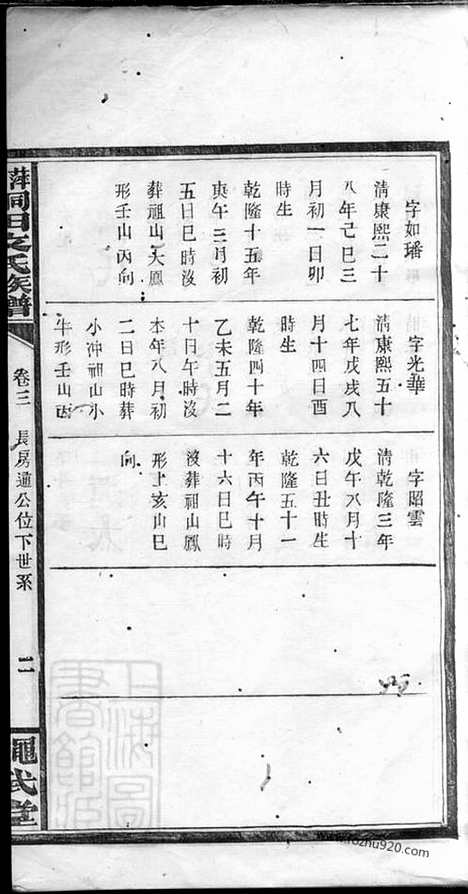 字如璠
清康熙二十
八年己巳三
月初一日卯
時生
乾隆十五年
庚午三月初
五日巳時沒
葬祖山大鳳
形壬山丙向
字光華
清康熙五十
七年戊戌八
月十四日酉
時生
乾隆四十年
乙未五月二
十日午時沒
本年八月初
二日巳時葬
小沖祖山小
牛形壬山丙
字昭雲
清乾隆三年
戊午八月十
六日丑時生
乾隆五十一
年丙午十月
十六日巳時
沒葬祖山鳳
形上亥山巳
向
萍 田文氏族譜
卷三
長房通公位下世系
二
式堂
上海圖書館藏
zhu920.com